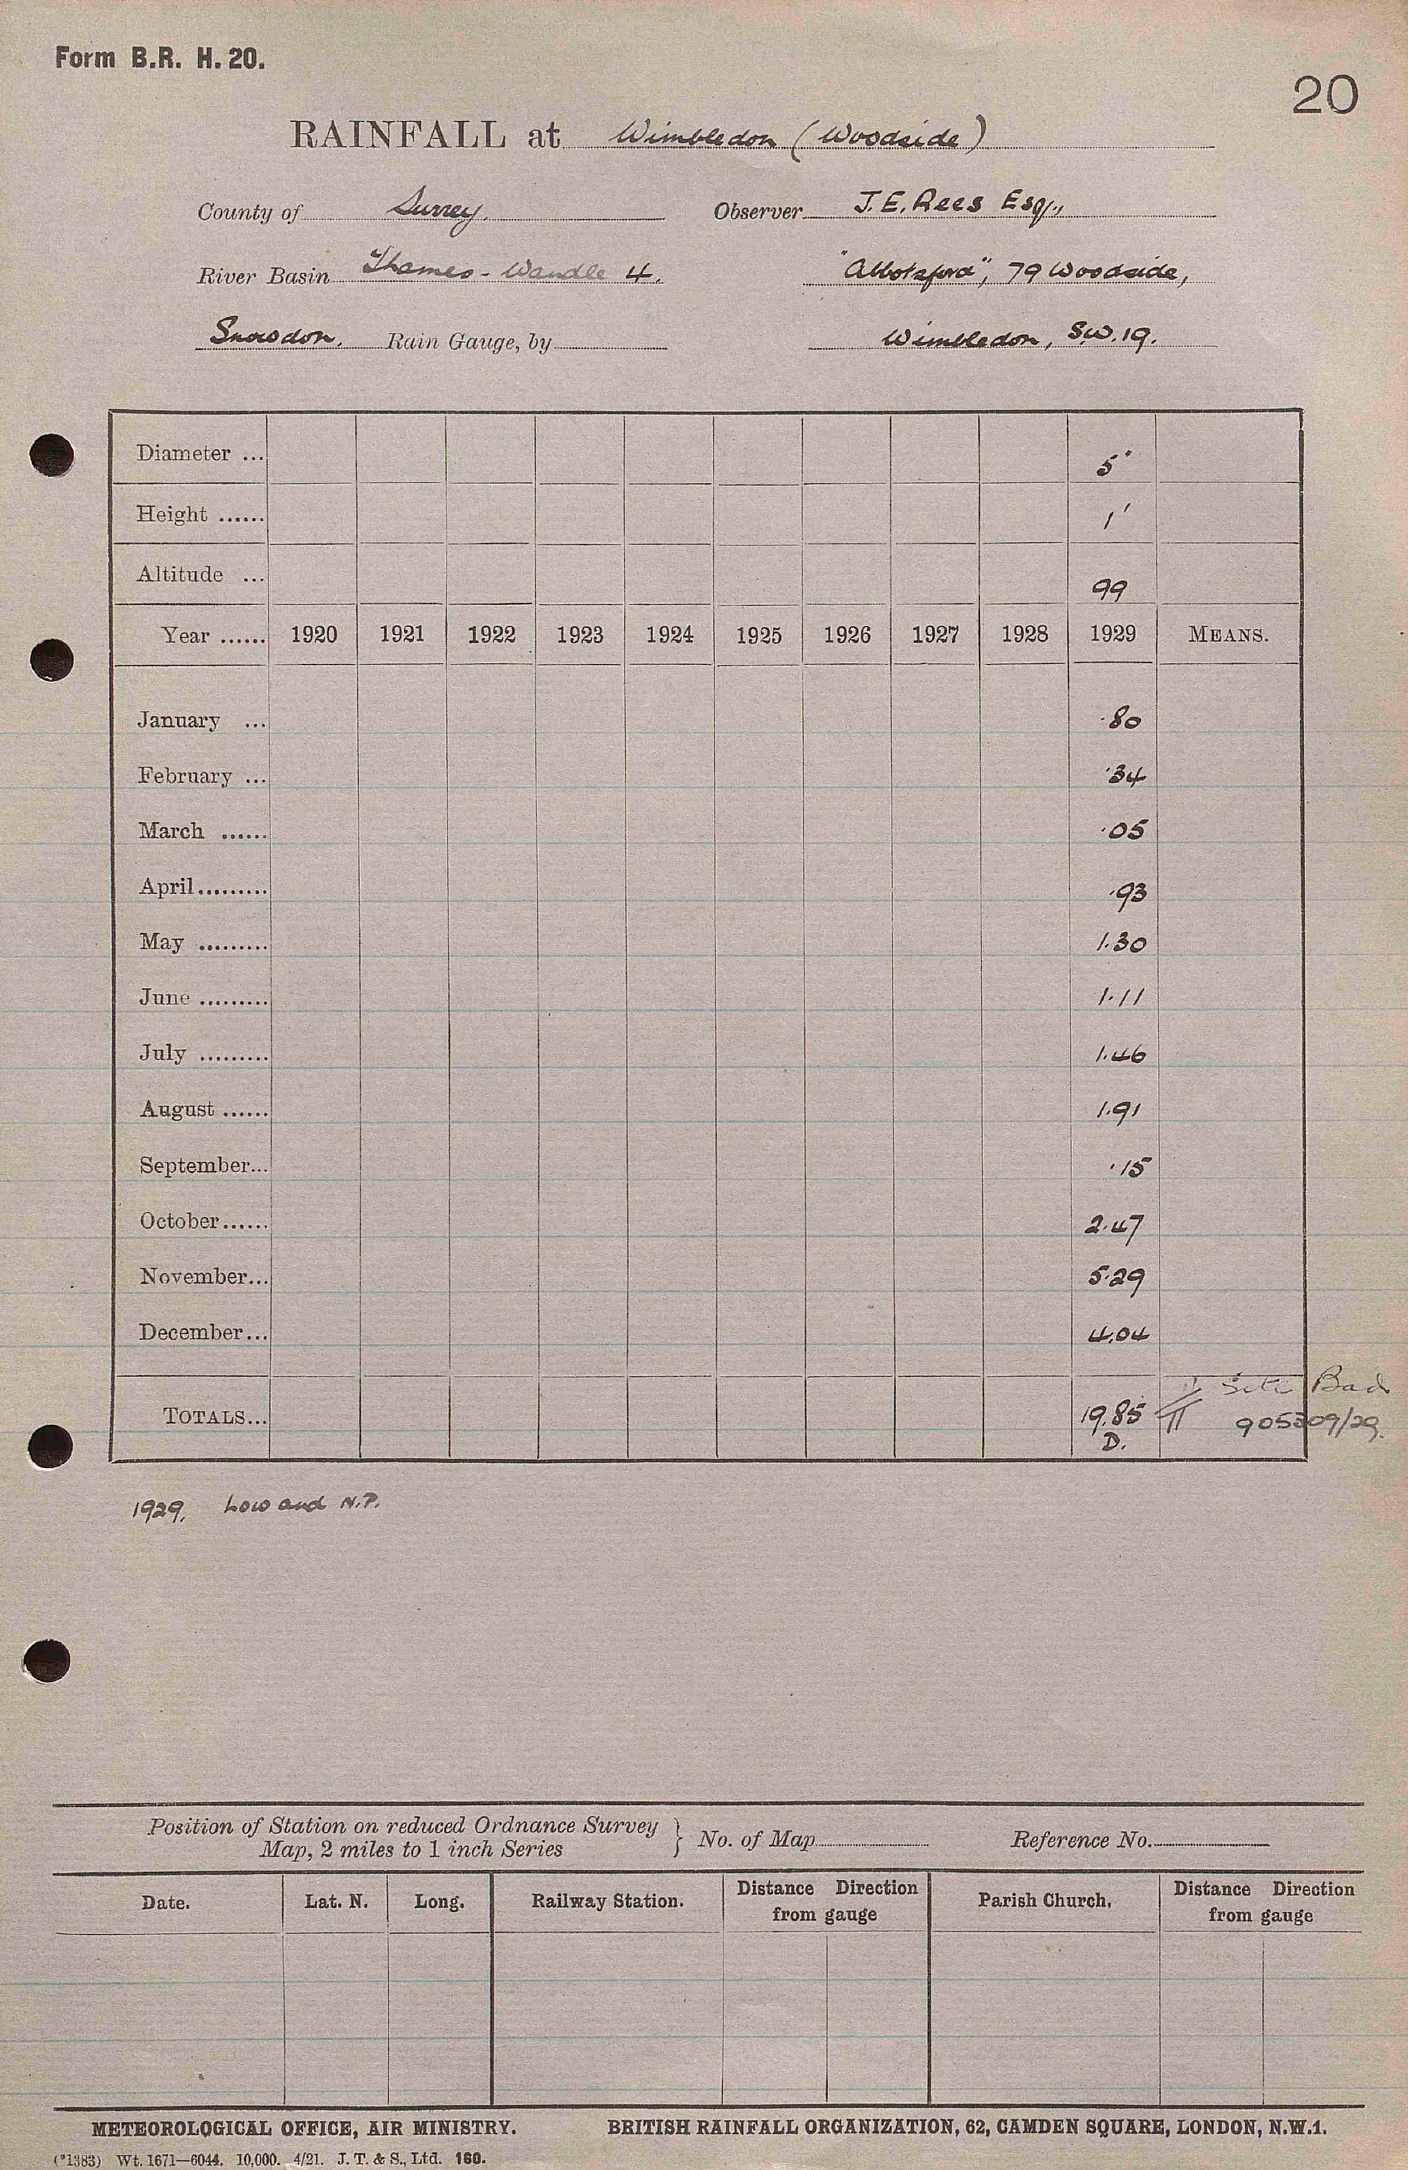 Form B.R. H. 20.
20
RAINFALL at Wimbledon (Woodside)
County of Surrey. Observer J.E. Rees Esq.,
River Basin Thames - Wandle 4. "Abbotsford", 79 Woodside,
Snowdon. Rain Gauge, by Wimbledon, S.W.19.
Diameter ... 5"
Height ...... 1'
Altitude ... 99
Year ...... 1920 1921 1922 1923 1924 1925 1926 1927 1928 1929 MEANS.
January ... .80
February ... .34
March ...... .05
April......... .93
May ......... 1.30
June ......... 1.11
July ......... 1.46
August ...... 1.91
September... .15
October...... 2.47
November... 5.29
December... 4.04
Site Bad
TOTALS... 19.85 905309/29.
D.
1929. Low and N.P.
Position of Station on reduced Ordnance Survey
Map, 2 miles to 1 inch Series } No. of Map Reference No.
Date. Lat. N. Long. Railway Station. Distance Direction from gauge Parish Church. Distance Direction from gauge
METEOROLOGICAL OFFICE, AIR MINISTRY. BRITISH RAINFALL ORGANIZATION, 62, CAMDEN SQUARE, LONDON, N.W.1.
(*1383) Wt. 1671—6044. 10,000. 4/21. J. T. & S., Ltd. 160.